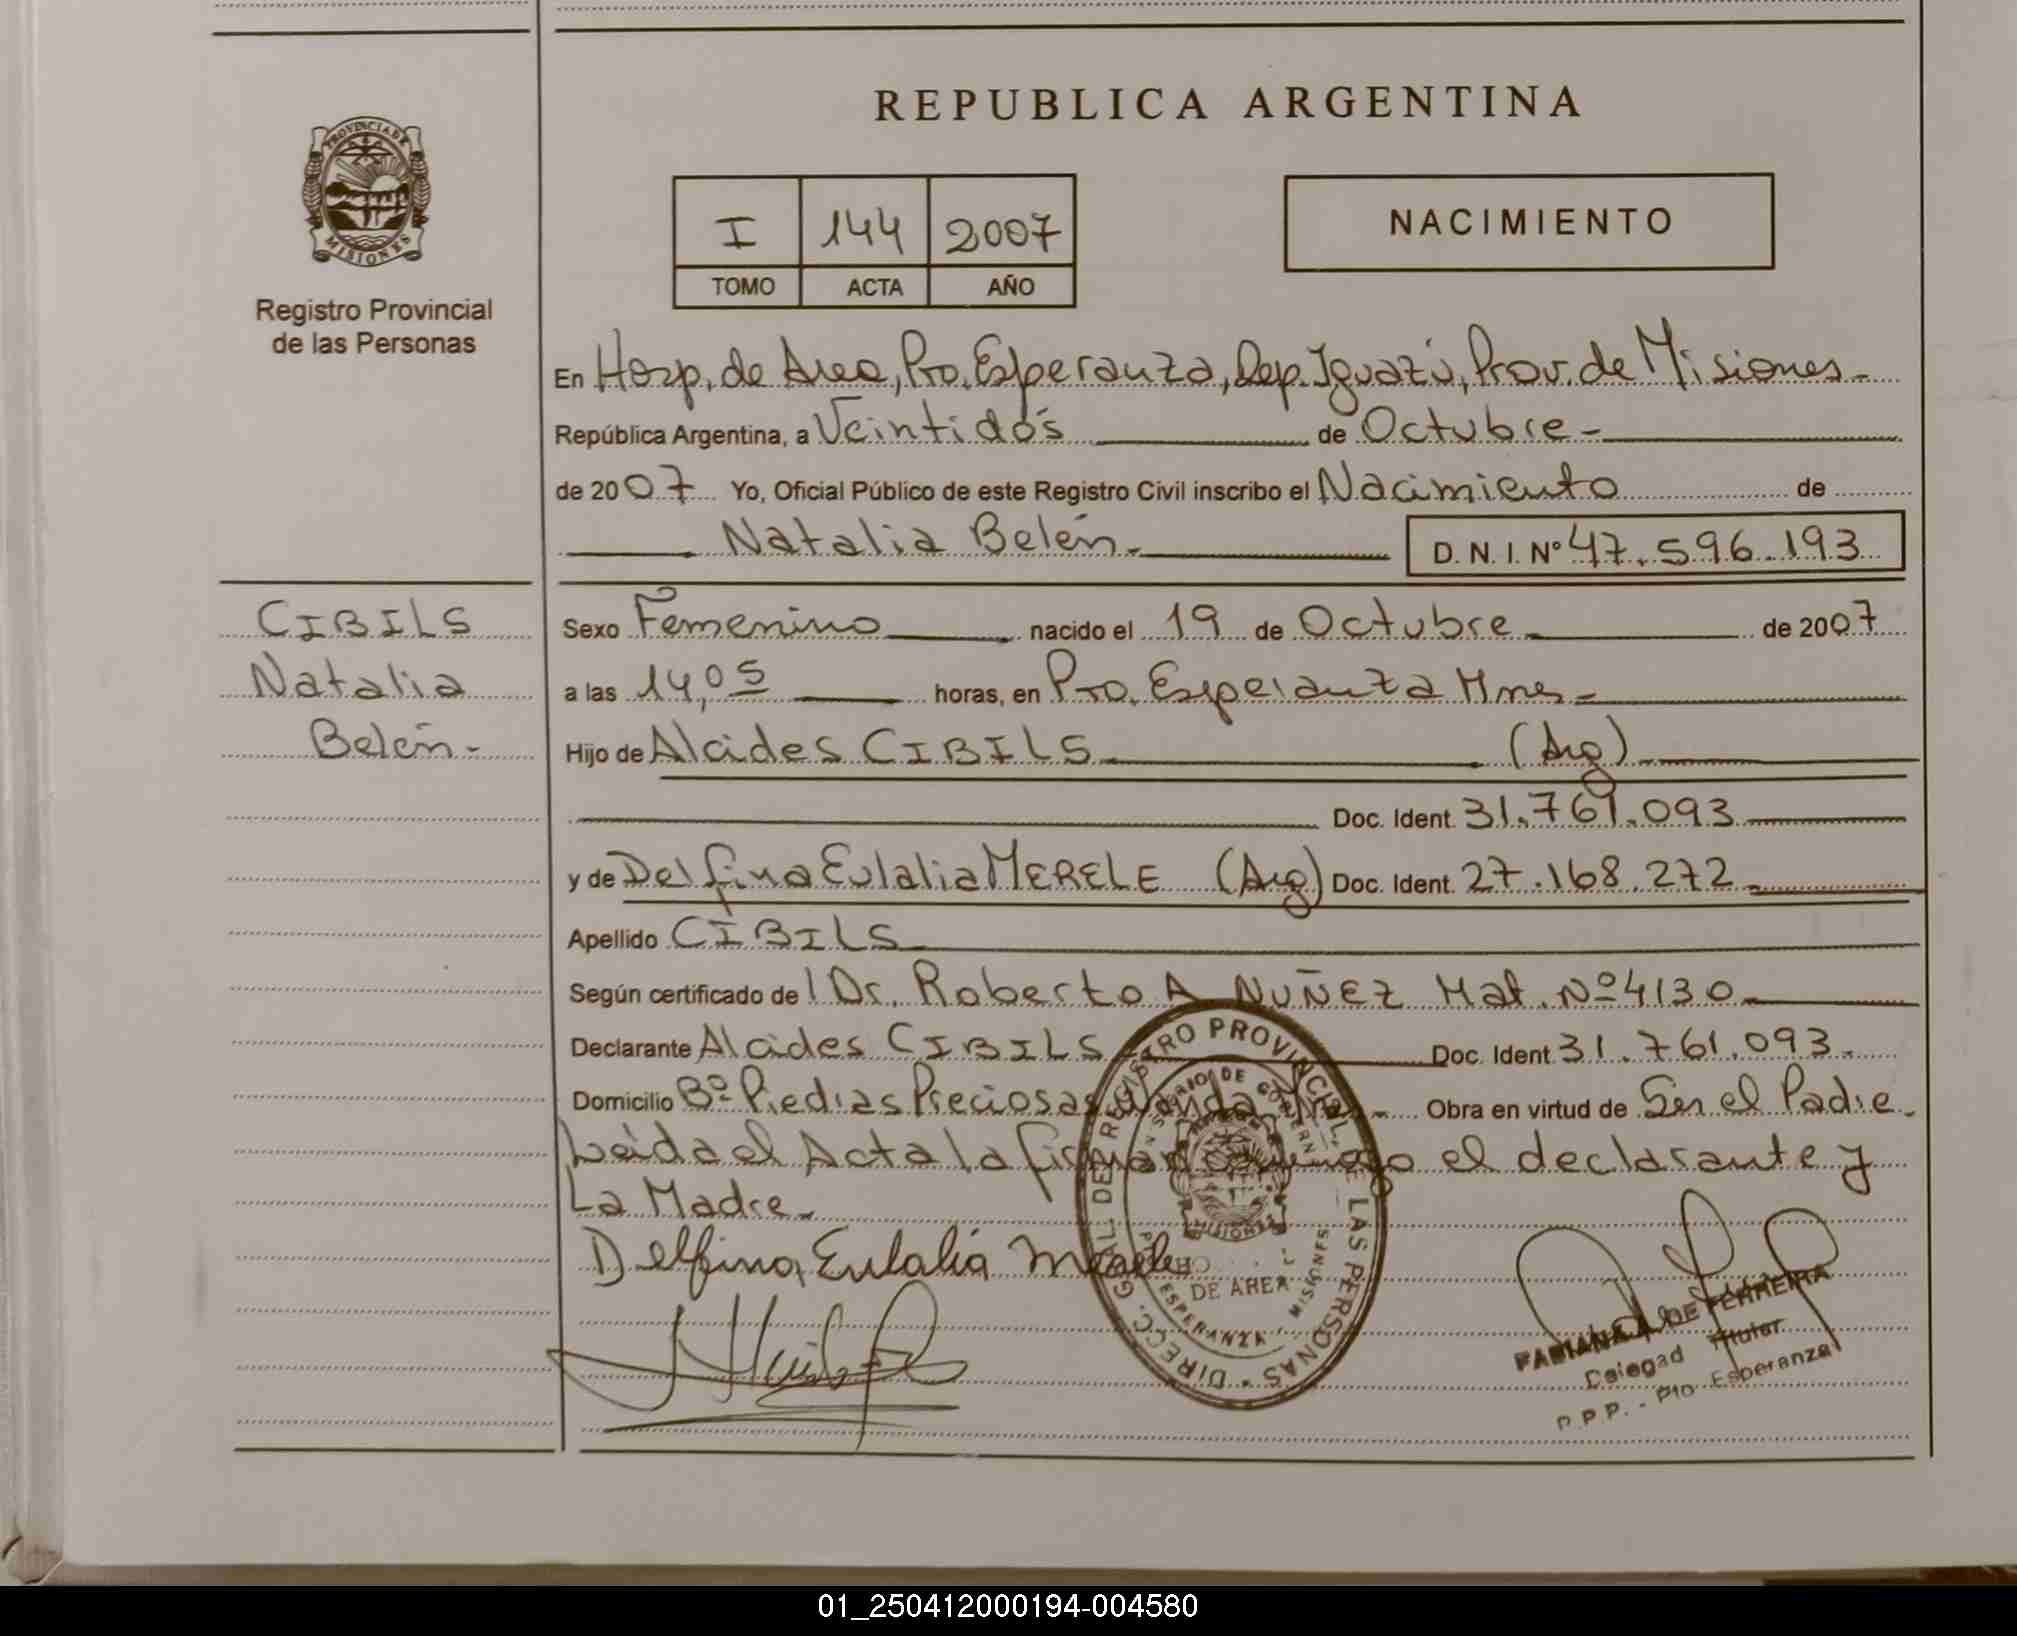 REPUBLICA ARGENTINA
PROVINCIA DE
MISIONES
Registro Provincial
de las Personas
I 144 2007
TOMO ACTA AÑO
NACIMIENTO
En Hosp. de Area, Pto. Esperanza, Dep. Iguazú, Prov. de Misiones-
República Argentina, a Veintidós de Octubre-
de 2007 Yo, Oficial Público de este Registro Civil inscribo el Nacimiento de
Natalia Belén- D. N. I. Nº 47.596.193
CIBILS
Natalia
Belén-
Sexo Femenino nacido el 19 de Octubre de 2007
a las 14,05 horas, en Pto. Esperanza Mnes-
Hijo de Alcides CIBILS (Arg)
Doc. Ident. 31.761.093
y de Delfina Eulalia MERELE (Arg) Doc. Ident. 27.168.272
Apellido CIBILS
Según certificado de l Dr. Roberto A NUÑEZ Mat. Nº 4130
Declarante Alcides CIBILS Doc. Ident 31.761.093.
Domicilio Bº Piedras Preciosas Wanda Mnes- Obra en virtud de Ser el Padre-
Leída el Acta la firman conmigo el declarante y
La Madre-
Delfina Eulalia Merele
DIRECC. GRAL. DEL REGISTRO PROVINCIAL DE LAS PERSONAS
MISIONES
DE AREA
ESPERANZA - MISIONES
FABIANA DE FERREIRA
Delegad Titular
R.P.P. - Pto Esperanza
01_250412000194-004580